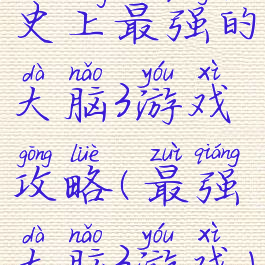 史上最强的
dà nǎo yóu xì
大脑3游戏
gōng lüè zuì qiáng
攻略(最强
dà nǎo yóu xì
大脑3游戏)